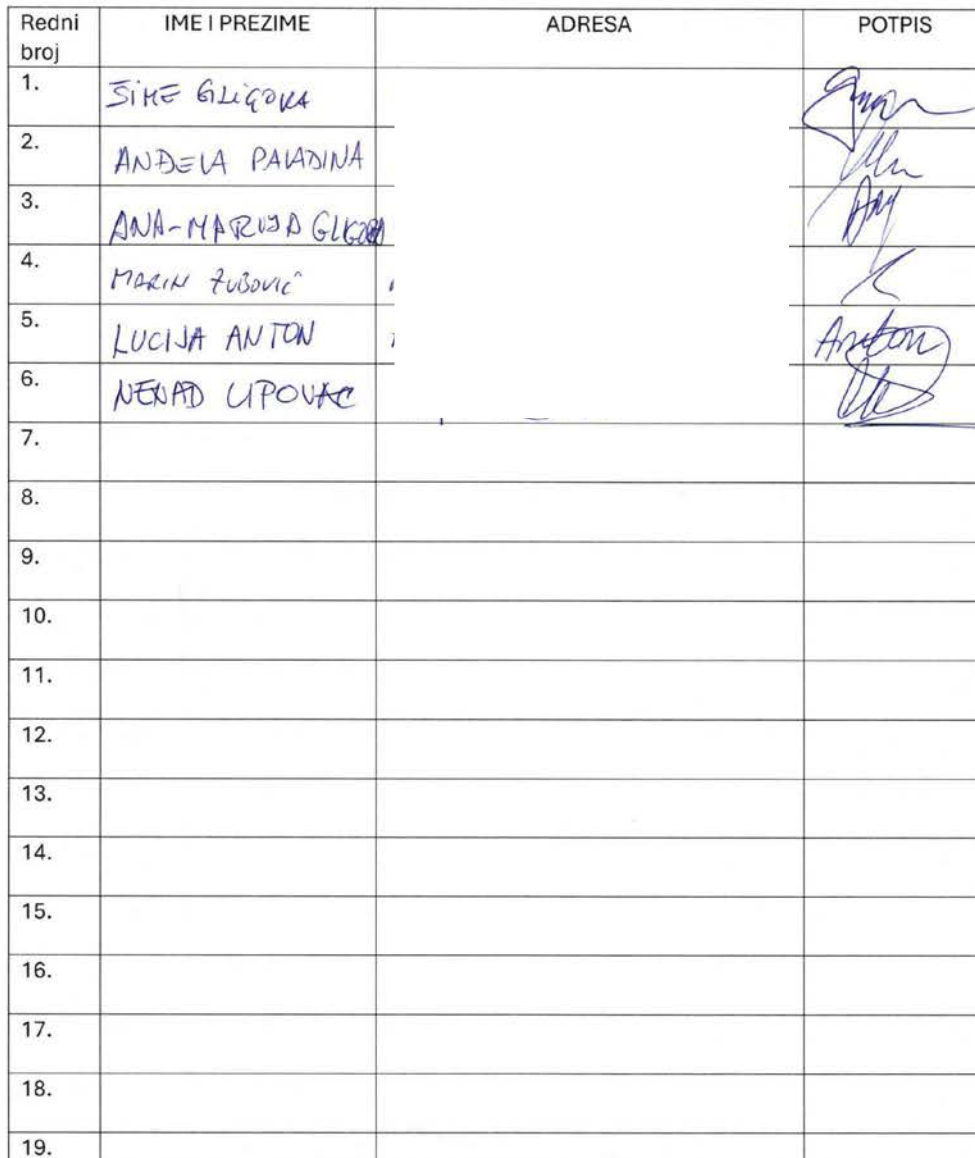 Redni broj IME I PREZIME ADRESA POTPIS
1. ŠIME GLIGORA
2. ANĐELA PALADINA
3. ANA-MARIJA GLIGORA
4. MARIN ZUBOVIĆ
5. LUCIJA ANTON Anton
6. NENAD LIPOVAC
7.
8.
9.
10.
11.
12.
13.
14.
15.
16.
17.
18.
19.